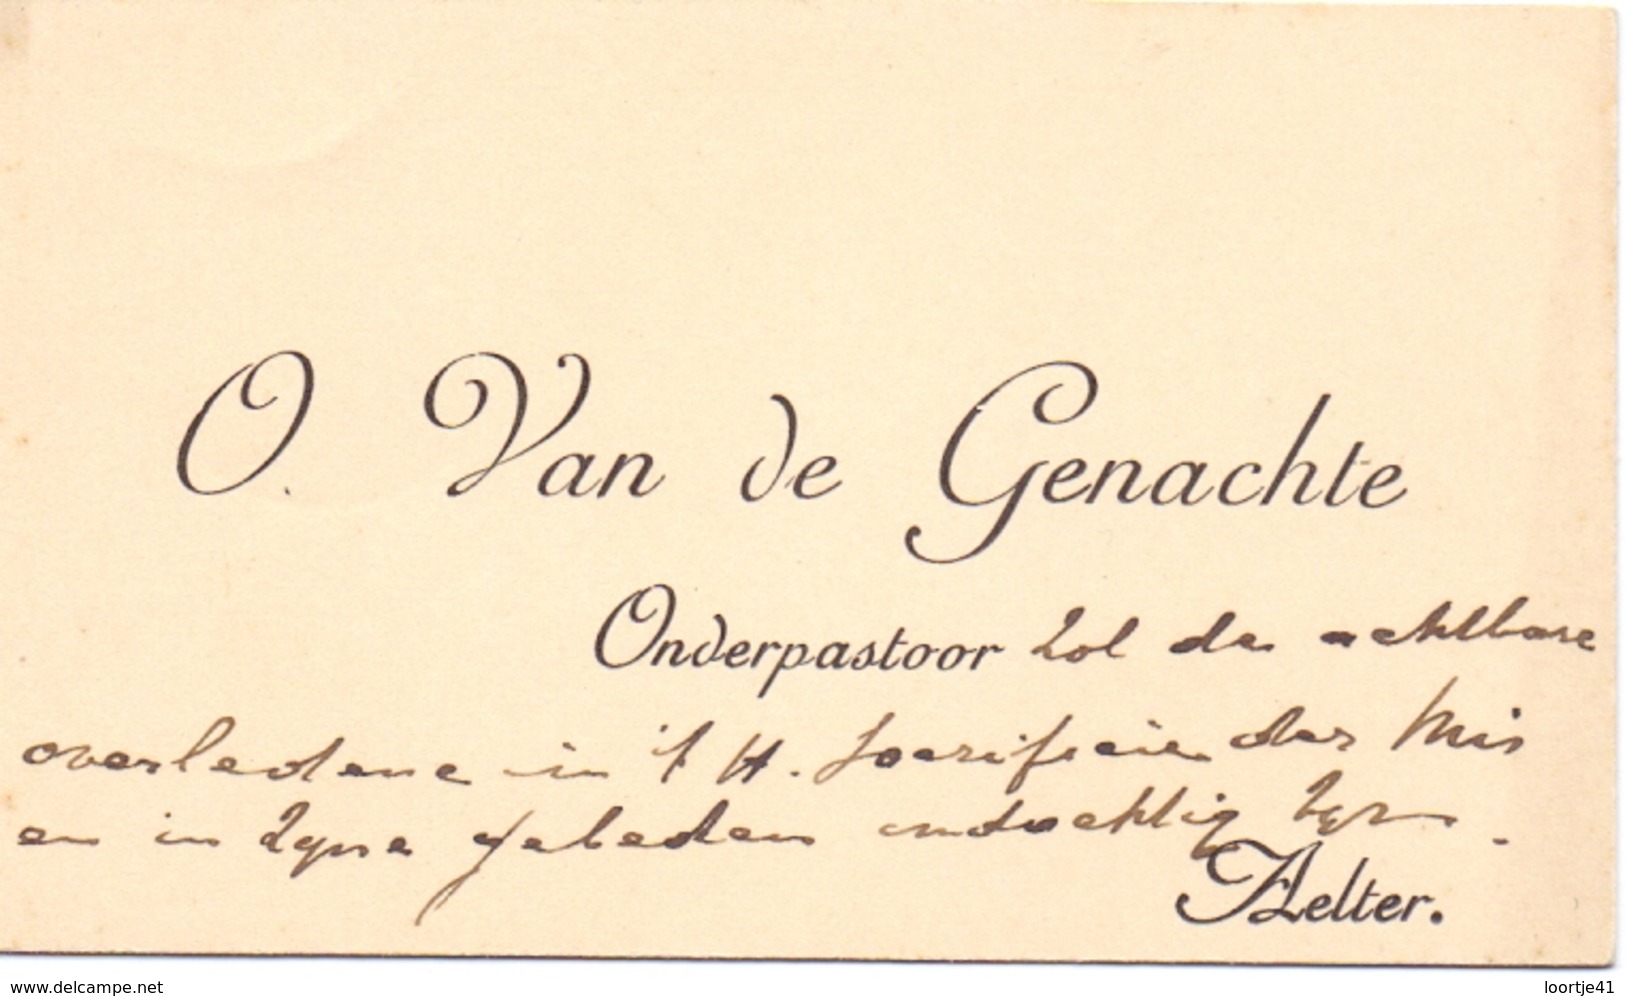 O. Van de Genachte
Onderpastoor zal de achtbare
overledene in 't H. Sacrificie der Mis
en in zyne gebeden indachtig zyn.
Aelter.
www.delcampe.net
loortje41